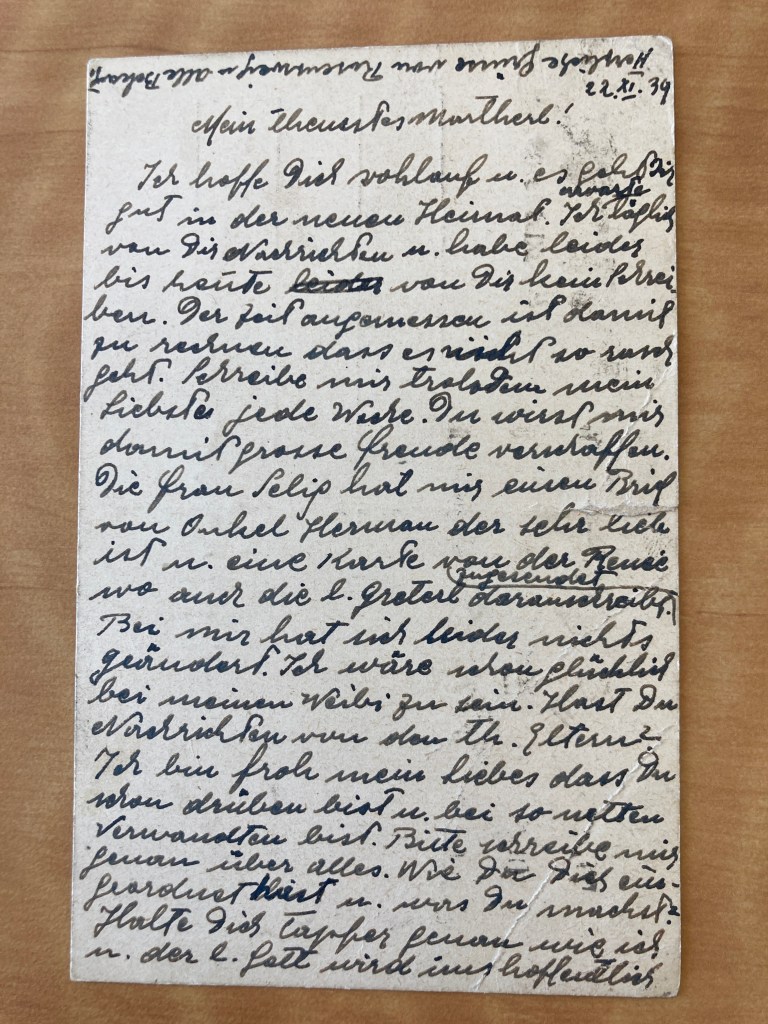 Herzliche Grüsse von Rosenzweig u alle Bekannt
22.XI.39
Mein theuerstes Martherl!
Ich hoffe Dich wohlauf u. es geht Dir
gut in der neuen Heimat. Ich erwarte täglich
von Dir Nachrichten u. habe leider
bis heute leider von Dir kein Schrei-
ben. Der Zeit angemessen ist damit
zu rechnen dass es nicht so rasch
geht. Schreibe mir trotzdem mein
Liebstes jede Woche. Du wirst mir
damit grosse Freude verschaffen.
Die Frau Selig hat mir einen Brief
von Onkel Herman der sehr lieb
ist u. eine Karte von der Renee zugesendet
wo auch die l. Greterl daranschreibt.
Bei mir hat sich leider nichts
geändert. Ich wäre schon glücklich
bei meinen Weibi zu sein. Hast Du
Nachrichten von den th. Eltern?
Ich bin froh mein liebes dass Du
schon drüben bist u. bei so netten
Verwandten bist. Bitte schreibe mir
genau über alles. Wie Du Dich ein-
geordnet hast u. was Du machst?
Halte Dich tapfer genau wie ich
u. der l. Gott wird uns hoffentlich